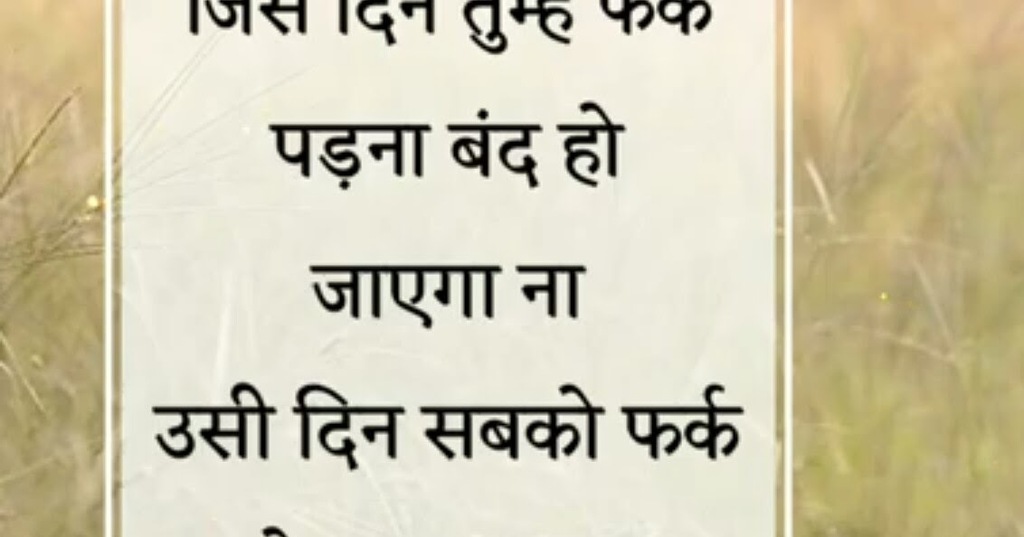 जिस दिन तुम्हे फर्क
पड़ना बंद हो
जाएगा ना
उसी दिन सबको फर्क